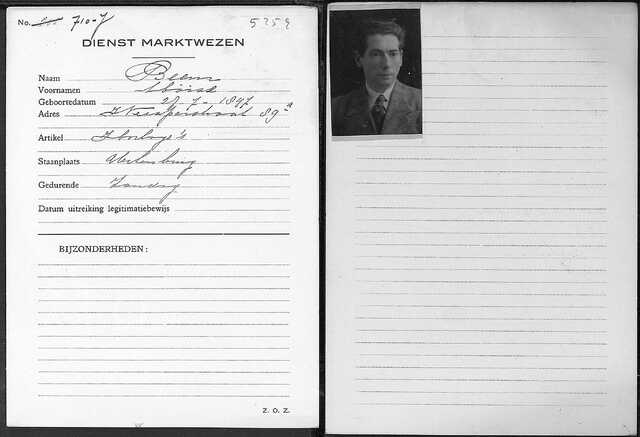 No. 710-7 5359
DIENST MARKTWEZEN
Naam Beem
Voornamen
Geboortedatum 28-7-1897
Adres N Kerkstraat 89 a
Artikel Horloge's
Staanplaats Uilenburg
Gedurende Zondag
Datum uitreiking legitimatiebewijs
BIJZONDERHEDEN:
Z. O. Z.